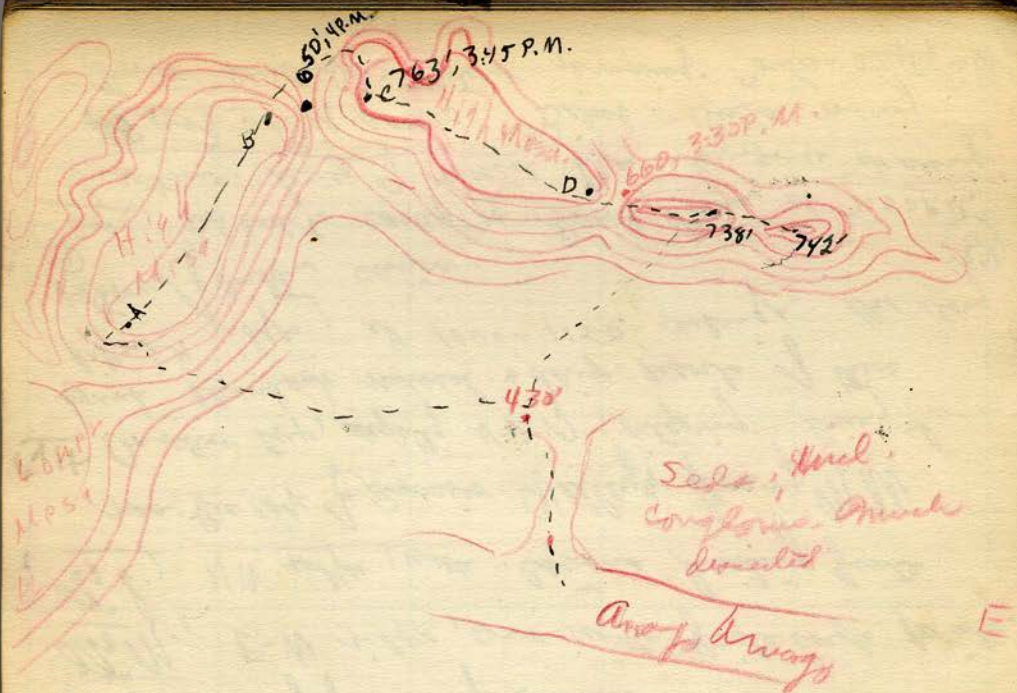 650', 4 P.M.
C 763', 3:45 P.M.
High Mesa
B
D
660, 3:30 P.M.
738'
742'
High
Mesa
A
430'
Lower
Mesa
Seds,
Conglom. Much
dissected
Arroyo
E